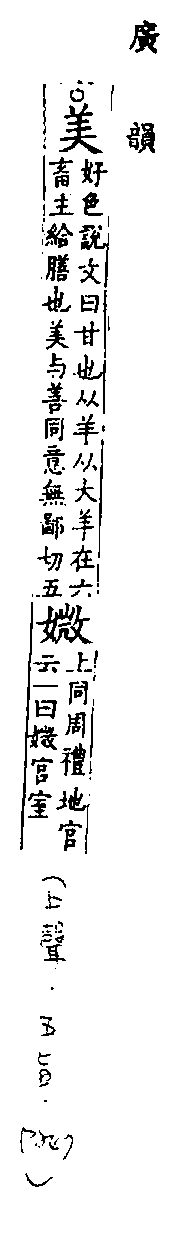 廣韻
○美
好色說文曰甘也从羊从大羊在六
畜主給膳也美与善同意無鄙切五
媺
上同周禮地官
云一曰媺宮室
(上聲.五旨.